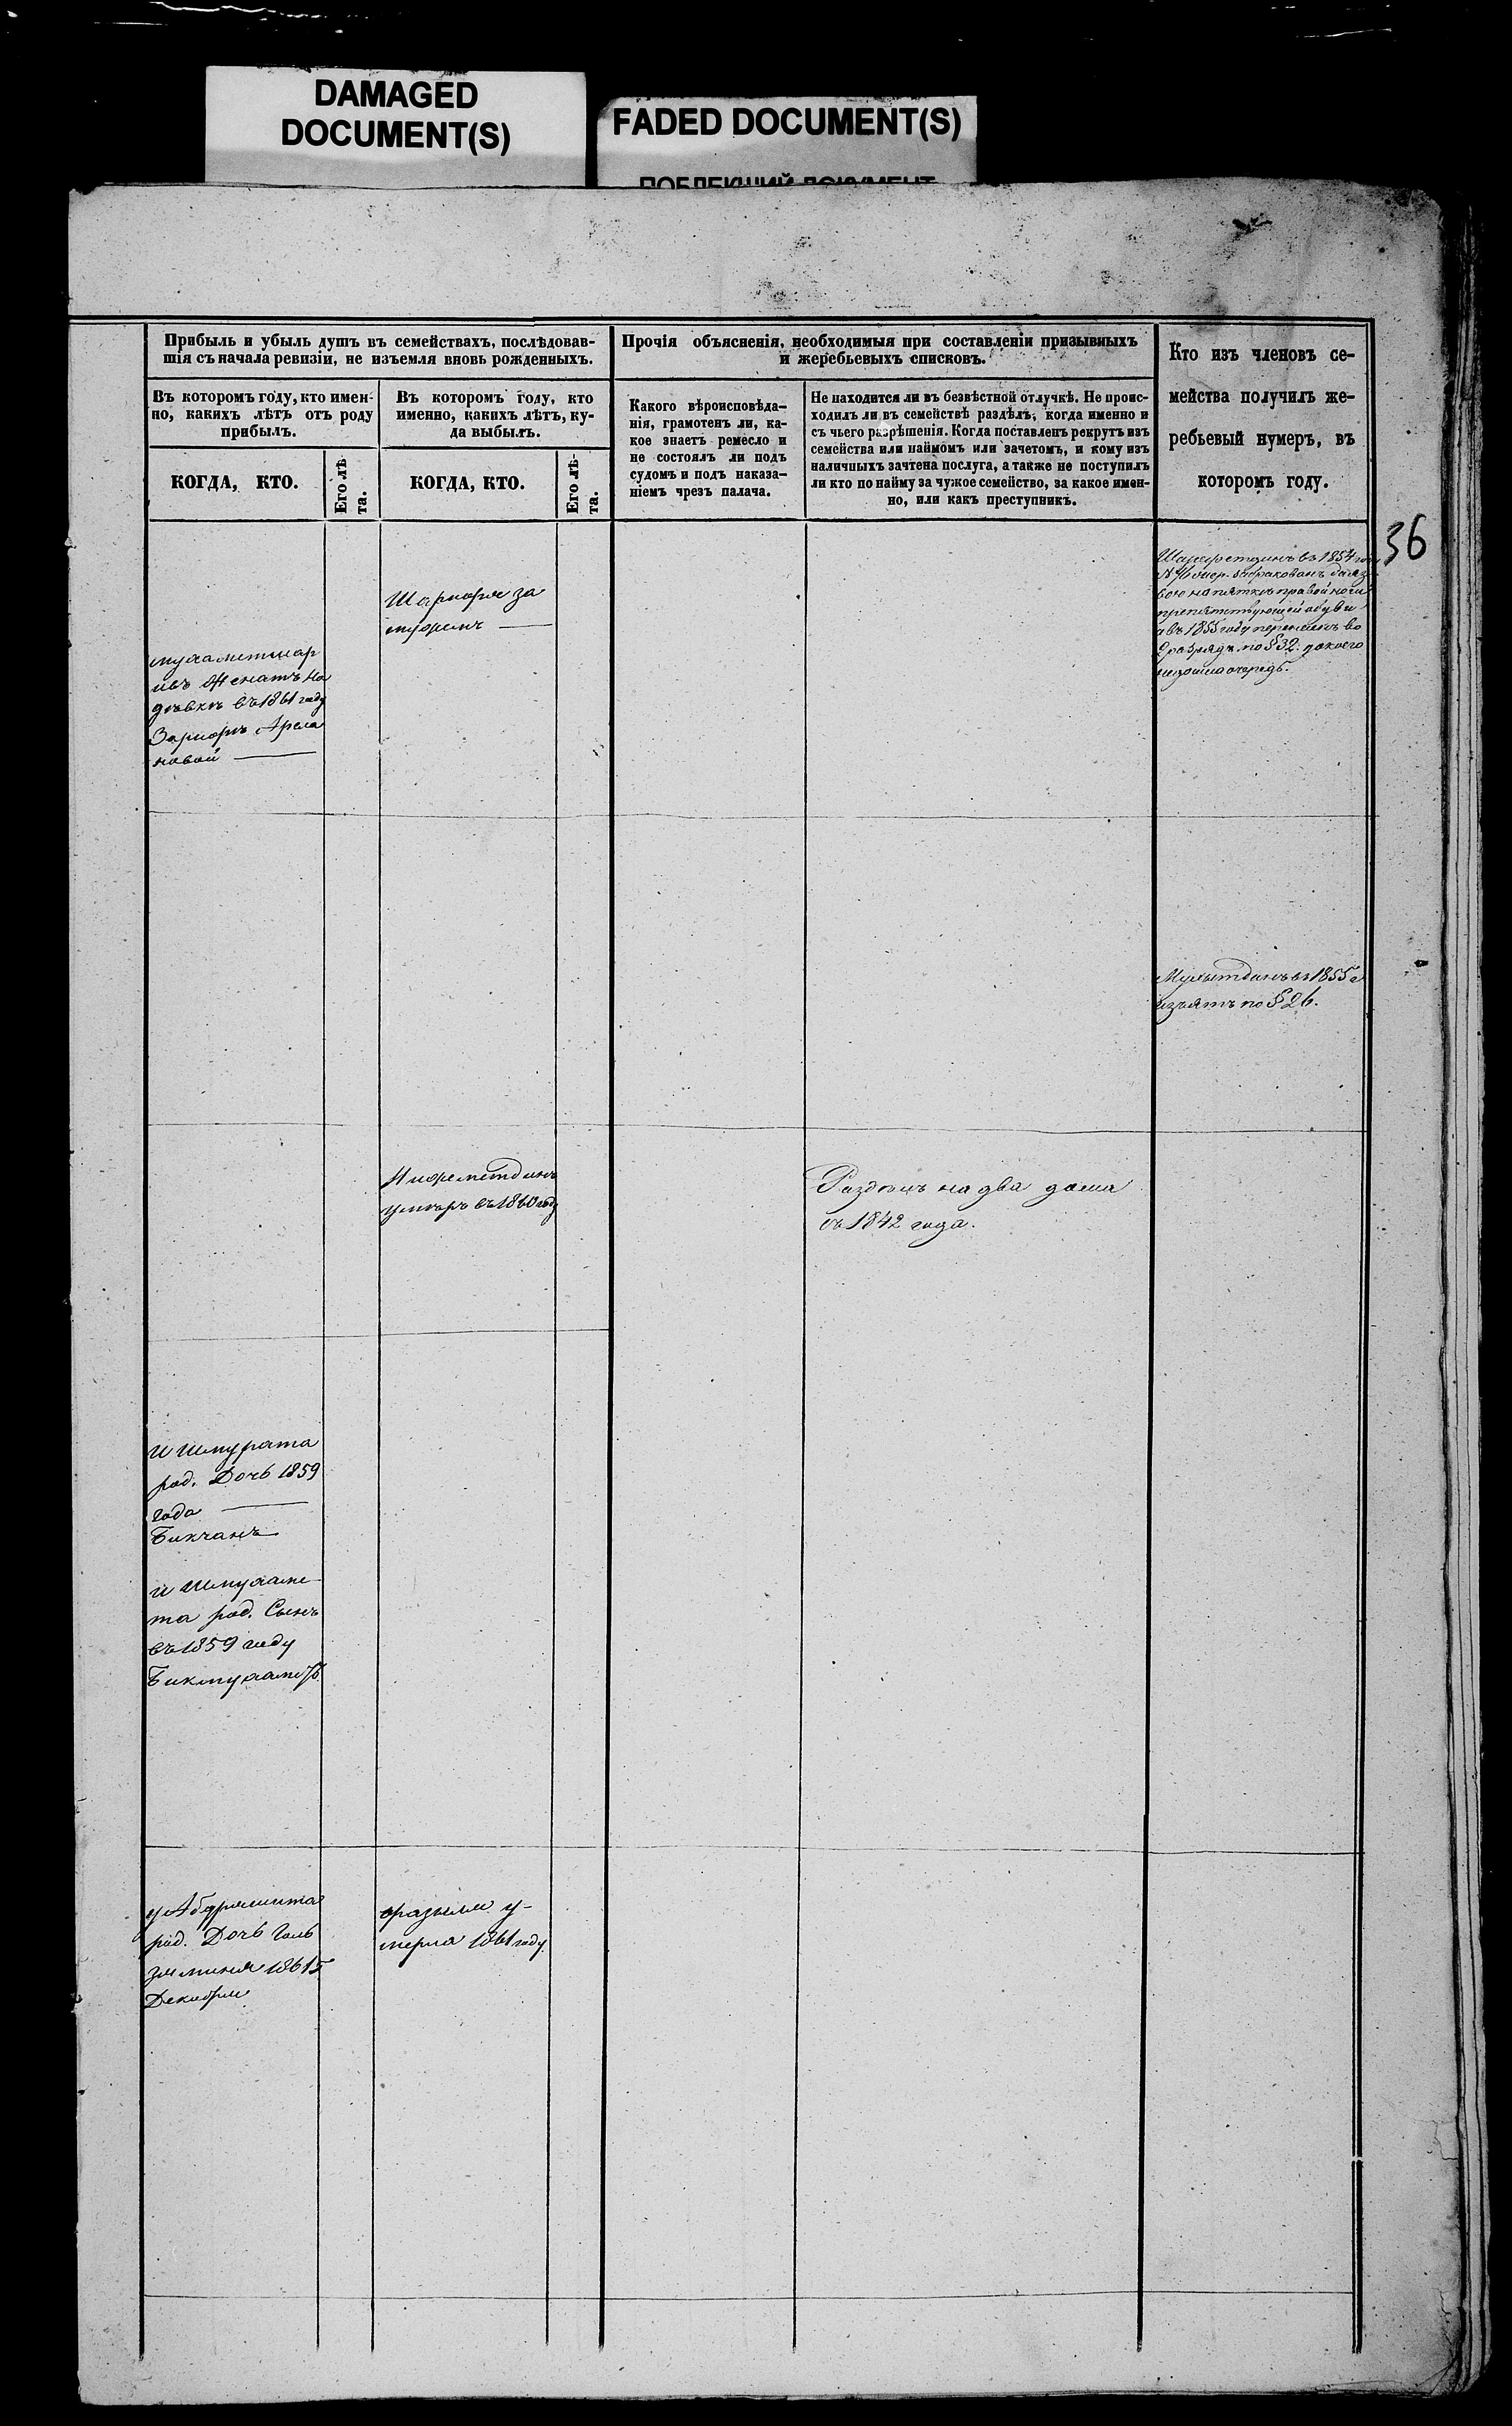 DAMAGED
DOCUMENT(S)
FADED DOCUMENT(S)
ПОБЛЕКШИЙ ДОКУМЕНТ
Прибыль и убыль душъ въ семействахъ, послѣдовав-
шія съ начала ревизіи, не изъемля вновь рожденныхъ.
Въ которомъ году, кто имен-
но, какихъ лѣтъ отъ роду
прибылъ.
Въ которомъ году, кто
именно, какихъ лѣтъ, ку-
да выбылъ.
КОГДА, КТО.
Его лѣ-
та.
КОГДА, КТО.
Его лѣ-
та.
Прочія объясненія, необходимыя при составленіи призывныхъ
и жеребьевыхъ списковъ.
Какого вѣроисповѣда-
нія, грамотенъ ли, ка-
кое знаетъ ремесло и
не состоялъ ли подъ
судомъ и подъ наказа-
ніемъ чрезъ палача.
Не находится ли въ безвѣстной отлучкѣ. Не проис-
ходилъ ли въ семействѣ раздѣлъ, когда именно и
съ чьего разрѣшенія. Когда поставленъ рекрутъ изъ
семейства или наймомъ или зачетомъ, и кому изъ
наличныхъ зачтена послуга, а также не поступилъ
ли кто по найму за чужое семейство, за какое имен-
но, или какъ преступникъ.
Кто изъ членовъ се-
мейства получилъ же-
ребьевый нумеръ, въ
которомъ году.
36
въ 1854
на пяткѣ правой ноги
препятствующей обуви
а въ 1855 году перечисленъ во
2 разрядъ по § 32.
очередь.
за
мужемъ
женатъ на
дѣвкѣ въ 1861 году
новой
въ 1855 г
изъятъ по § 26.
умеръ въ 1860 году
Раздѣлъ на два дома
съ 1842 года.
Ишмурата
род. Дочь 1859
года
Бикчанъ
Ишмухаме-
та род. Сынъ
въ 1859 году
Бикмухаметъ
род. Дочь
1861 г
Декабря
у-
мерла 1861 году.